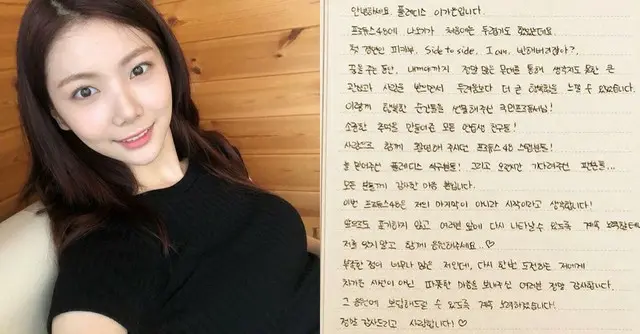 안녕하세요. 플레디스 이가은입니다.
프로듀스48에 나오기가 처음에는 두렵기도 했었는데요.
첫 경연인 피카부, Side to side, I am, 반해버리잖아?,
꿈을 꾸는 동안, 내꺼야까지 정말 많은 무대를 통해 생각지도 못한 큰
관심과 사랑을 받으면서 두려움보다 더 큰 행복함을 느낄 수 있었습니다.
이렇게 행복한 순간들을 선물해주신 국민프로듀서님!
소중한 추억을 만들어준 모든 연습생 친구들!
사랑으로 함께 해주시던 프로듀스 48 스텝분들!
늘 믿어주신 플레디스 식구분들! 그리고 오랜시간 기다려주신 팬분들...
모든 분들께 감사한 마음 뿐입니다.
이번 프로듀스48은 저의 마지막이 아니라 시작이라고 생각합니다!
앞으로도 포기하지 않고 여러분 앞에 다시 나타날 수 있도록 계속 노력할테니
저를 잊지 말고 함께 응원해주세요..♡
부족한 점이 너무나 많은 저인데, 다시 한번 도전하는 저에게
차가운 시선이 아닌 따뜻한 마음을 보내주신 여러분 정말 감사합니다.
그 응원에 보답해드릴 수 있도록 계속 노력하겠습니다.
정말 감사드리고 사랑합니다! ♡